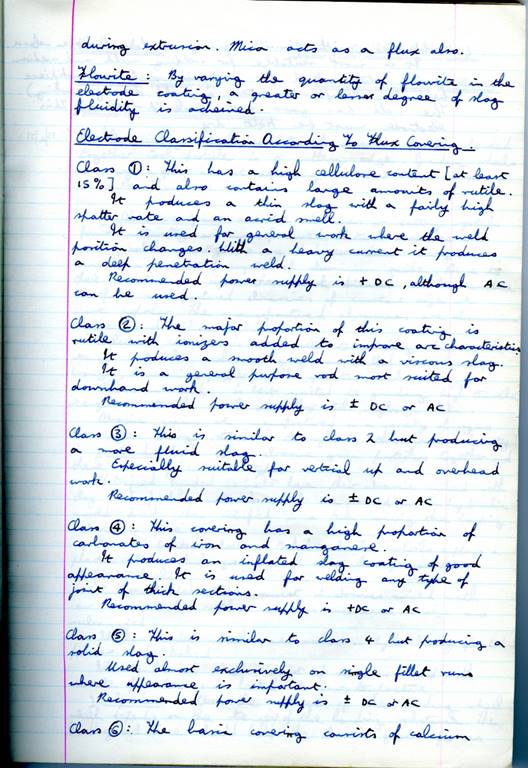 during extrusion. Mica acts as a flux also.
Flowrite: By varying the quantity of flowrite in the
electrode coating, a greater or lesser degree of slag
fluidity is acheived.
Electrode Classification According To Flux Covering.
Class ①: This has a high cellulose content [at least
15%] and also contains large amounts of rutile.
It produces a thin slag with a fairly high
spatter rate and an acrid smell.
It is used for general work where the weld
position changes. With a heavy current it produces
a deep penetration weld.
Recommended power supply is + DC, although AC
can be used.
Class ②: The major proportion of this coating is
rutile with ionizers added to improve arc characteristics.
It produces a smooth weld with a viscous slag.
It is a general purpose rod most suited for
downhand work.
Recommended power supply is ± DC or AC
Class ③: This is similar to class 2 but producing
a more fluid slag.
Especially suitable for vertical up and overhead
work.
Recommended power supply is ± DC or AC
Class ④: This covering has a high proportion of
carbonates of iron and manganese.
It produces an inflated slag coating of good
appearance. It is used for welding any type of
joint of thick sections.
Recommended power supply is +DC or AC
Class ⑤: This is similar to class 4 but producing a
solid slag.
Used almost exclusively on single fillet runs
where appearance is important.
Recommended power supply is ± DC or AC
Class ⑥: The basic covering consists of calcium